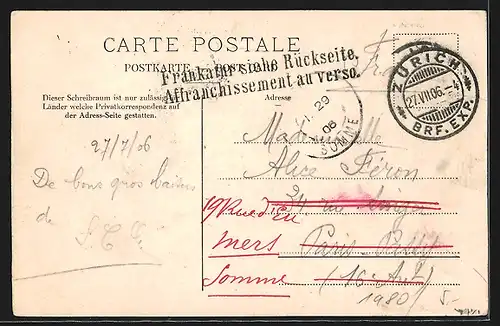 CARTE POSTALE
POSTKARTE
Frankatur siehe Rückseite.
Affranchissement au verso.
ZÜRICH
27.VII.06.-4
BRF. EXP.
29
06
SOMME
Dieser Schreibraum ist nur zulässig
Länder welche Privatkorrespondenz auf
der Adress-Seite gestatten.
Adresse
27/7/06
De bons gros baisers
de
Mademoiselle
Alice Féron
24 rue
19 Rue
Mers
Paris
Somme
(16e Arrt)
1980
5.-